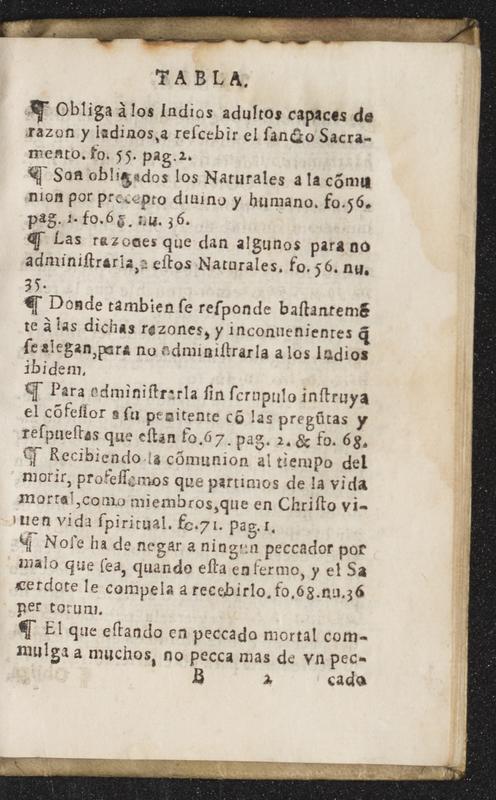 TABLA.
¶ Obliga à los Indios adultos capaces de
razon y ladinos, a rescebir el sancto Sacra-
mento. fo. 55. pag. 2.
¶ Son obligados los Naturales a la cõmu
nion por precepto diuino y humano. fo. 56.
pag. 1. fo. 68. nu. 36.
¶ Las razones que dan algunos para no
administrarla, a estos Naturales. fo. 56. nu.
35.
¶ Donde tambien se responde bastantemẽ
te à las dichas razones, y inconuenientes q̃
se alegan, para no administrarla a los Indios
ibidem.
¶ Para administrarla sin scrupulo instruya
el cõfessor a su penitente cõ las pregũtas y
respuestas que estan fo. 67. pag. 2. & fo. 68.
¶ Recibiendo la cõmunion al tiempo del
morir, professamos que partimos de la vida
mortal, como miembros, que en Christo vi-
uen vida spiritual. fo. 71. pag. 1.
¶ Nose ha de negar a ningun peccador por
malo que sea, quando esta enfermo, y el Sa
cerdote le compela a recebirlo. fo. 68. nu. 36
per totum.
¶ El que estando en peccado mortal com-
mulga a muchos, no pecca mas de vn pec-
B 2 cado